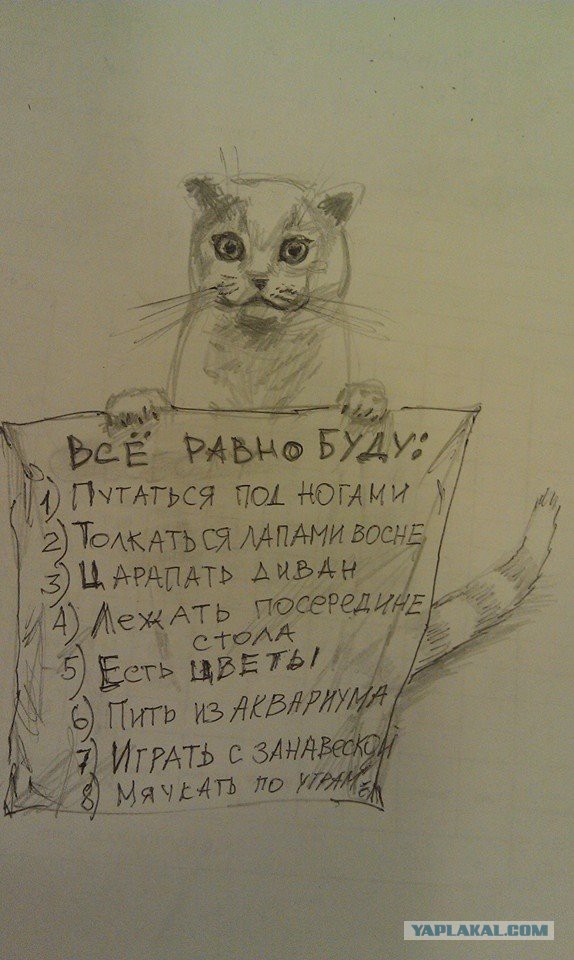 ВСЁ РАВНО БУДУ:
1) ПУТАТЬСЯ ПОД НОГАМИ
2) ТОЛКАТЬСЯ ЛАПАМИ ВОСНЕ
3) ЦАРАПАТЬ ДИВАН
4) ЛЕЖАТЬ ПОСЕРЕДИНЕ
СТОЛА
5) ЕСТЬ ЦВЕТЫ
6) ПИТЬ ИЗ АКВАРИУМА
7) ИГРАТЬ С ЗАНАВЕСКОЙ
8) МЯУКАТЬ ПО УТРАМ
YAPLAKAL.COM